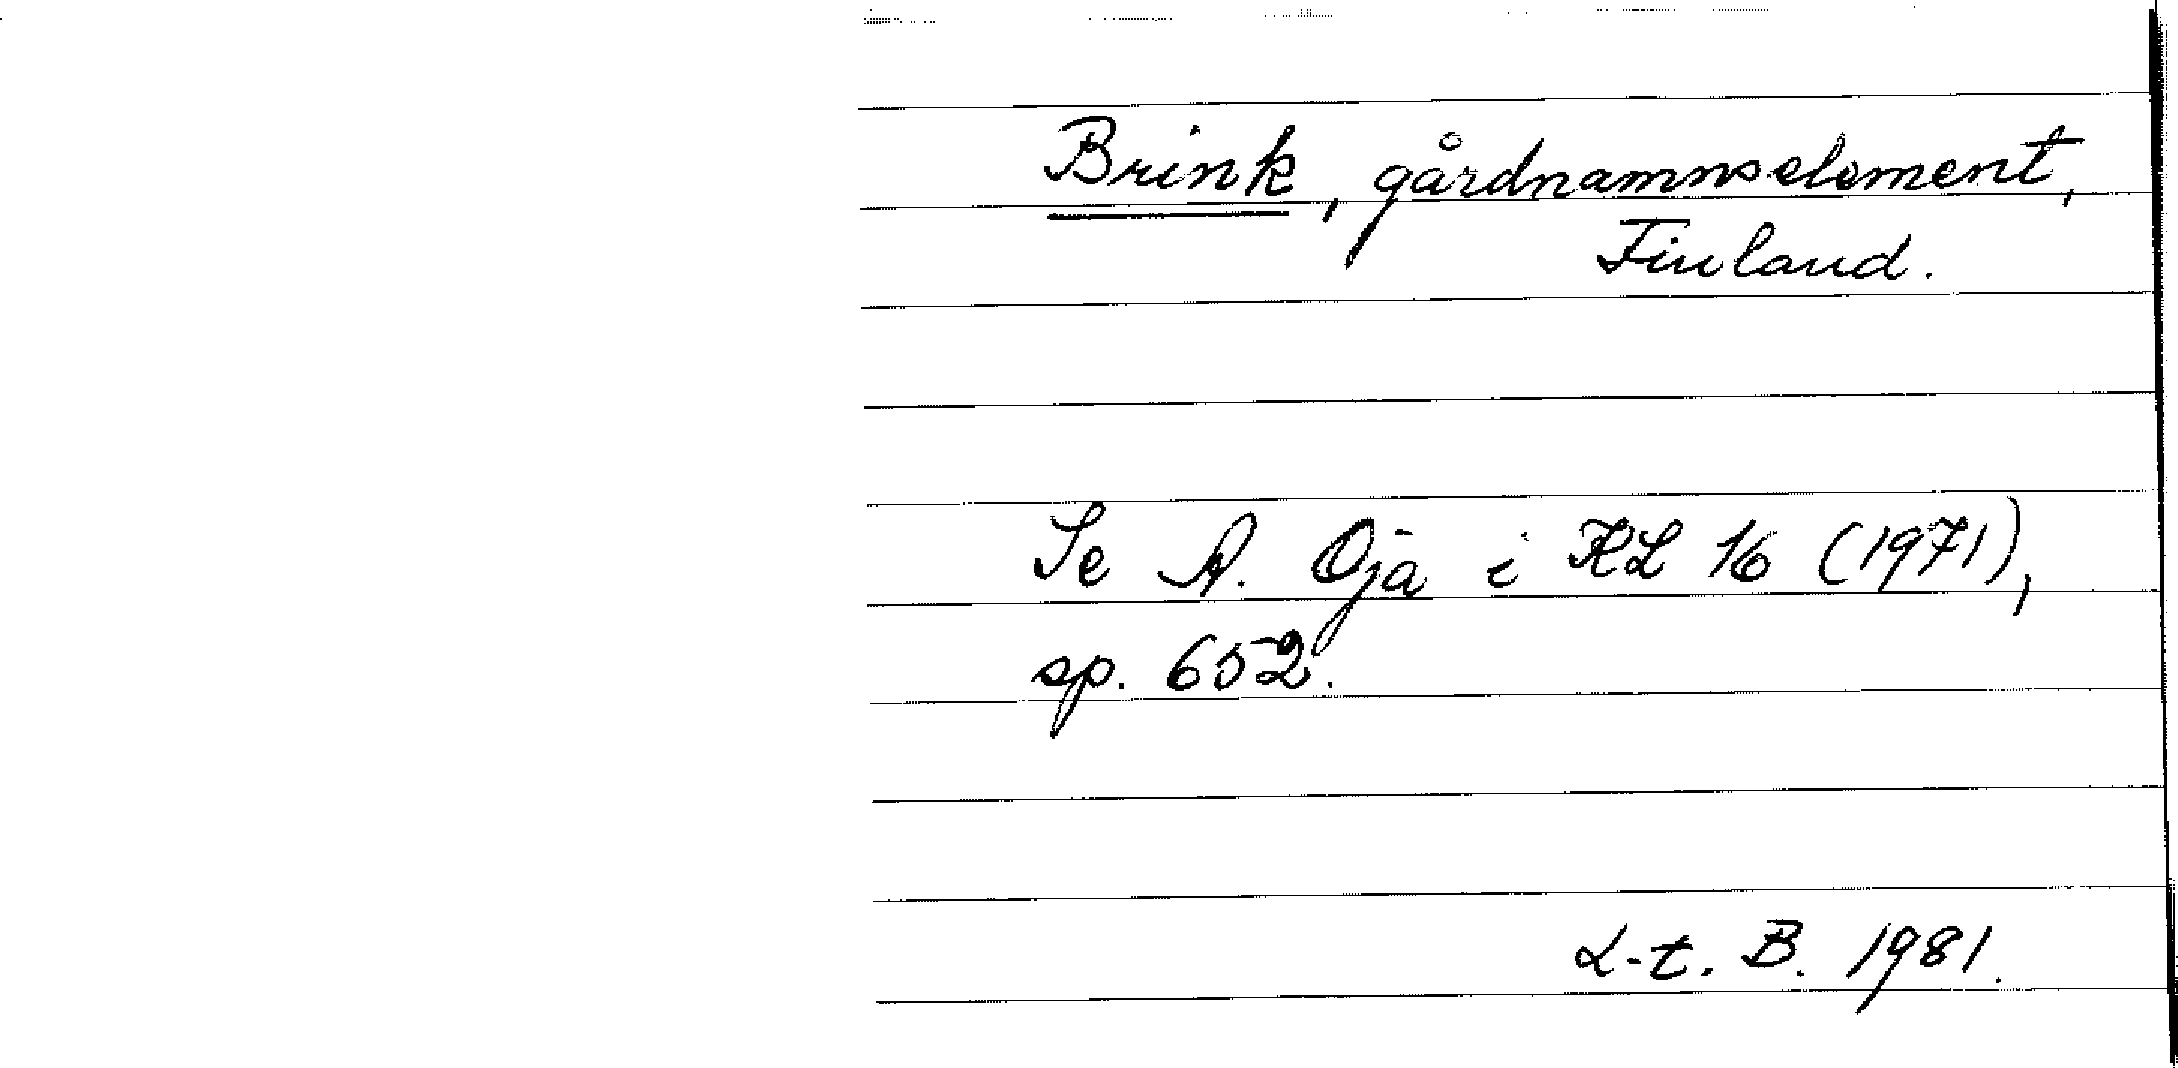 Brink, gårdnamnselement,
Finland.
Se A. Oja i KL 16 (1971),
sp. 652.
L-t. B. 1981.